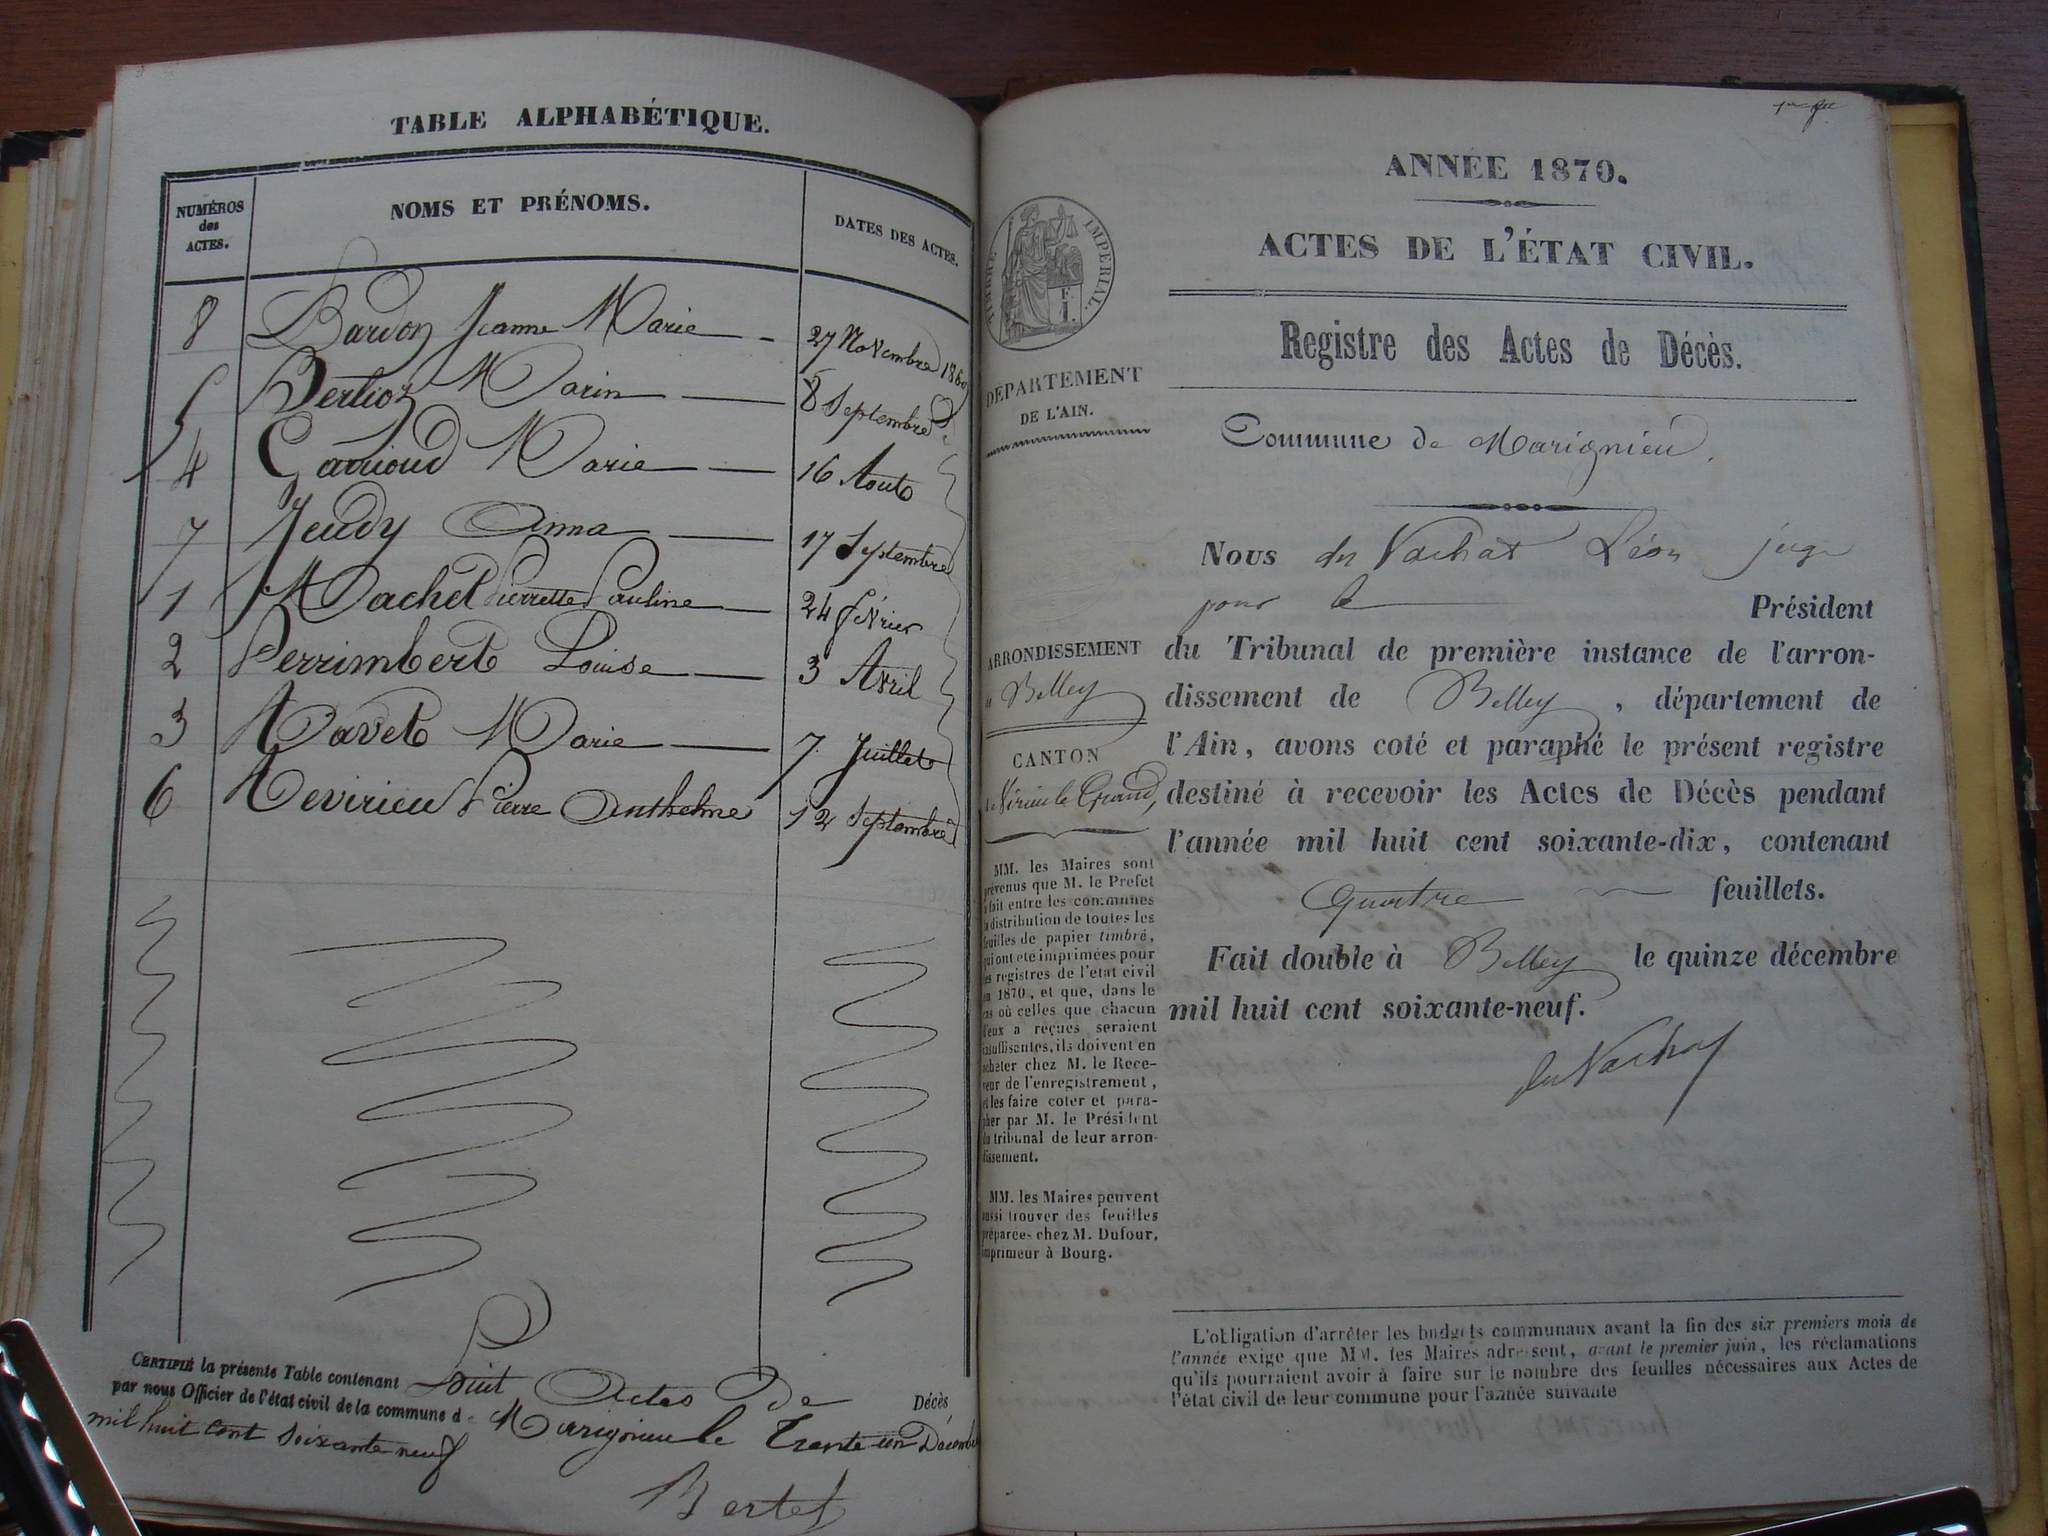 TABLE ALPHABÉTIQUE.
NUMÉROS des ACTES. NOMS ET PRÉNOMS. DATES DES ACTES.
8 Bardon Jeanne Marie 27 Novembre 1869
5 Berlioz Marin 8 Septembre
4 Garnioud Marie 16 Aout
7 Jeudy Anna 17 Septembre
1 Machet Pierrette Pauline 24 février
2 Perrimbert Louise 3 Avril
3 Ravet Marie 7 Juillet
6 Revirieu Pierre Anthelme 12 Septembre
CERTIFIÉ la présente Table contenant huit Actes De Décès
par nous Officier de l'état civil de la commune de Marignieu le Trente un Décembre
mil huit cent soixante neuf
Bertet
ANNÉE 1870.
ACTES DE L'ÉTAT CIVIL.
Registre des Actes de Décès.
TIMBRE IMPÉRIAL.
DÉPARTEMENT
DE L'AIN.
Commune de Marignieu.
Nous du Vachat Léon juge
pour le Président
du Tribunal de première instance de l'arron-
dissement de Belley, département de
l'Ain, avons coté et paraphé le présent registre
destiné à recevoir les Actes de Décès pendant
l'année mil huit cent soixante-dix, contenant
Quatre feuillets.
Fait double à Belley le quinze décembre
mil huit cent soixante-neuf.
du Vachat
ARRONDISSEMENT
Belley
CANTON
de Virieu le Grand,
MM. les Maires sont
prévenus que M. le Préfet
a fait entre les communes
la distribution de toutes les
feuilles de papier timbré,
qui ont été imprimées pour
les registres de l'état civil
en 1870, et que, dans le
cas où celles que chacun
d'eux a reçues seraient
insuffisantes, ils doivent en
acheter chez M. le Rece-
veur de l'enregistrement,
et les faire coter et para-
pher par M. le Président
du tribunal de leur arron-
dissement.
MM. les Maires peuvent
aussi trouver des feuilles
préparées chez M. Dufour,
imprimeur à Bourg.
L'obligation d'arrêter les budgets communaux avant la fin des six premiers mois de
l'année exige que MM. les Maires adressent, avant le premier juin, les réclamations
qu'ils pourraient avoir à faire sur le nombre des feuilles nécessaires aux Actes de
l'état civil de leur commune pour l'année suivante